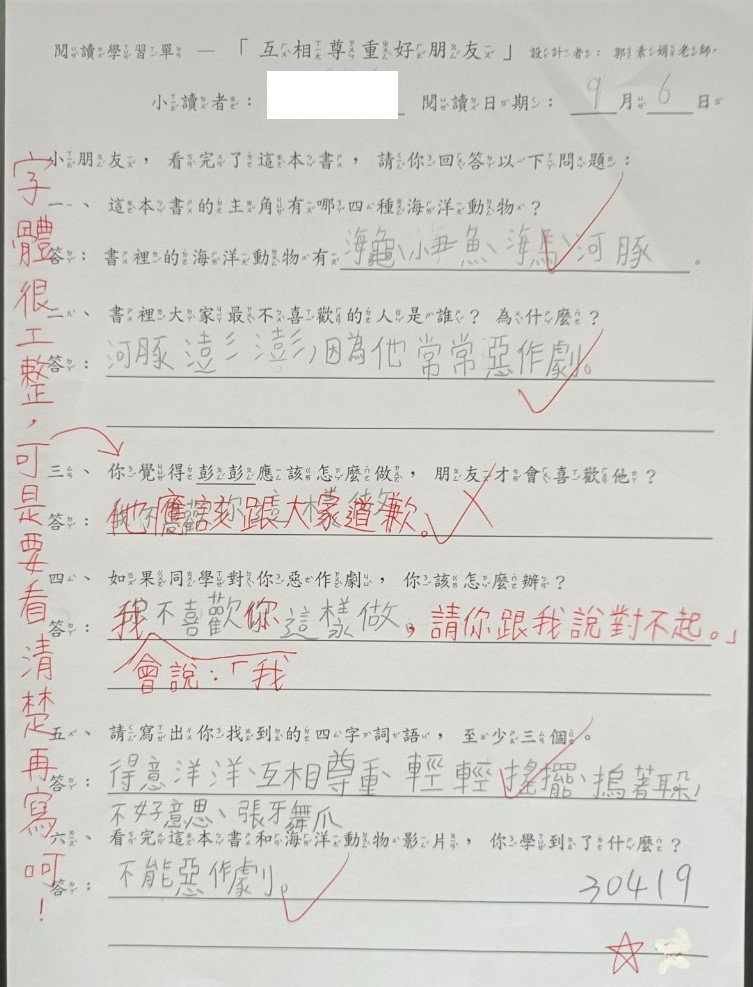 閱讀學習單 — 「互相尊重好朋友」 設計者：郭素娟老師
小讀者： 閱讀日期： 9 月 6 日
小朋友，看完了這本書，請你回答以下問題：
一、這本書的主角有哪四種海洋動物？
答：書裡的海洋動物有 海龜、小丑魚、海馬、河豚。
二、書裡大家最不喜歡的人是誰？為什麼？
答：河豚澎澎，因為他常常惡作劇。
三、你覺得彭彭應該怎麼做，朋友才會喜歡他？
答：他應該跟大家道歉。
四、如果同學對你惡作劇，你該怎麼辦？
答：我不喜歡你這樣做，請你跟我說對不起。」
會說：「我
五、請寫出你找到的四字詞語，至少三個。
答：得意洋洋、互相尊重、輕輕搖擺、摀著躲，
不好意思、張牙舞爪
六、看完這本書和海洋動物影片，你學到了什麼？
答：不能惡作劇。
30419
字體很工整，可是要看清楚再寫呵！